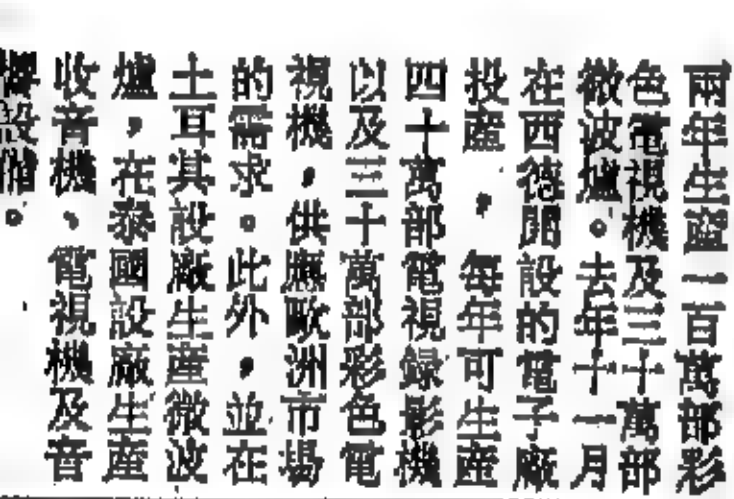 兩年生產一百萬部彩
色電視機及三十萬部
微波爐。去年十一月
在西德開設的電子廠
投產,每年可生產
四十萬部電視錄影機
以及三十萬部彩色電
視機,供應歐洲市場
的需求。此外,並在
土耳其設廠生產微波
爐,在泰國設廠生產
收音機、電視機及音
響設備。